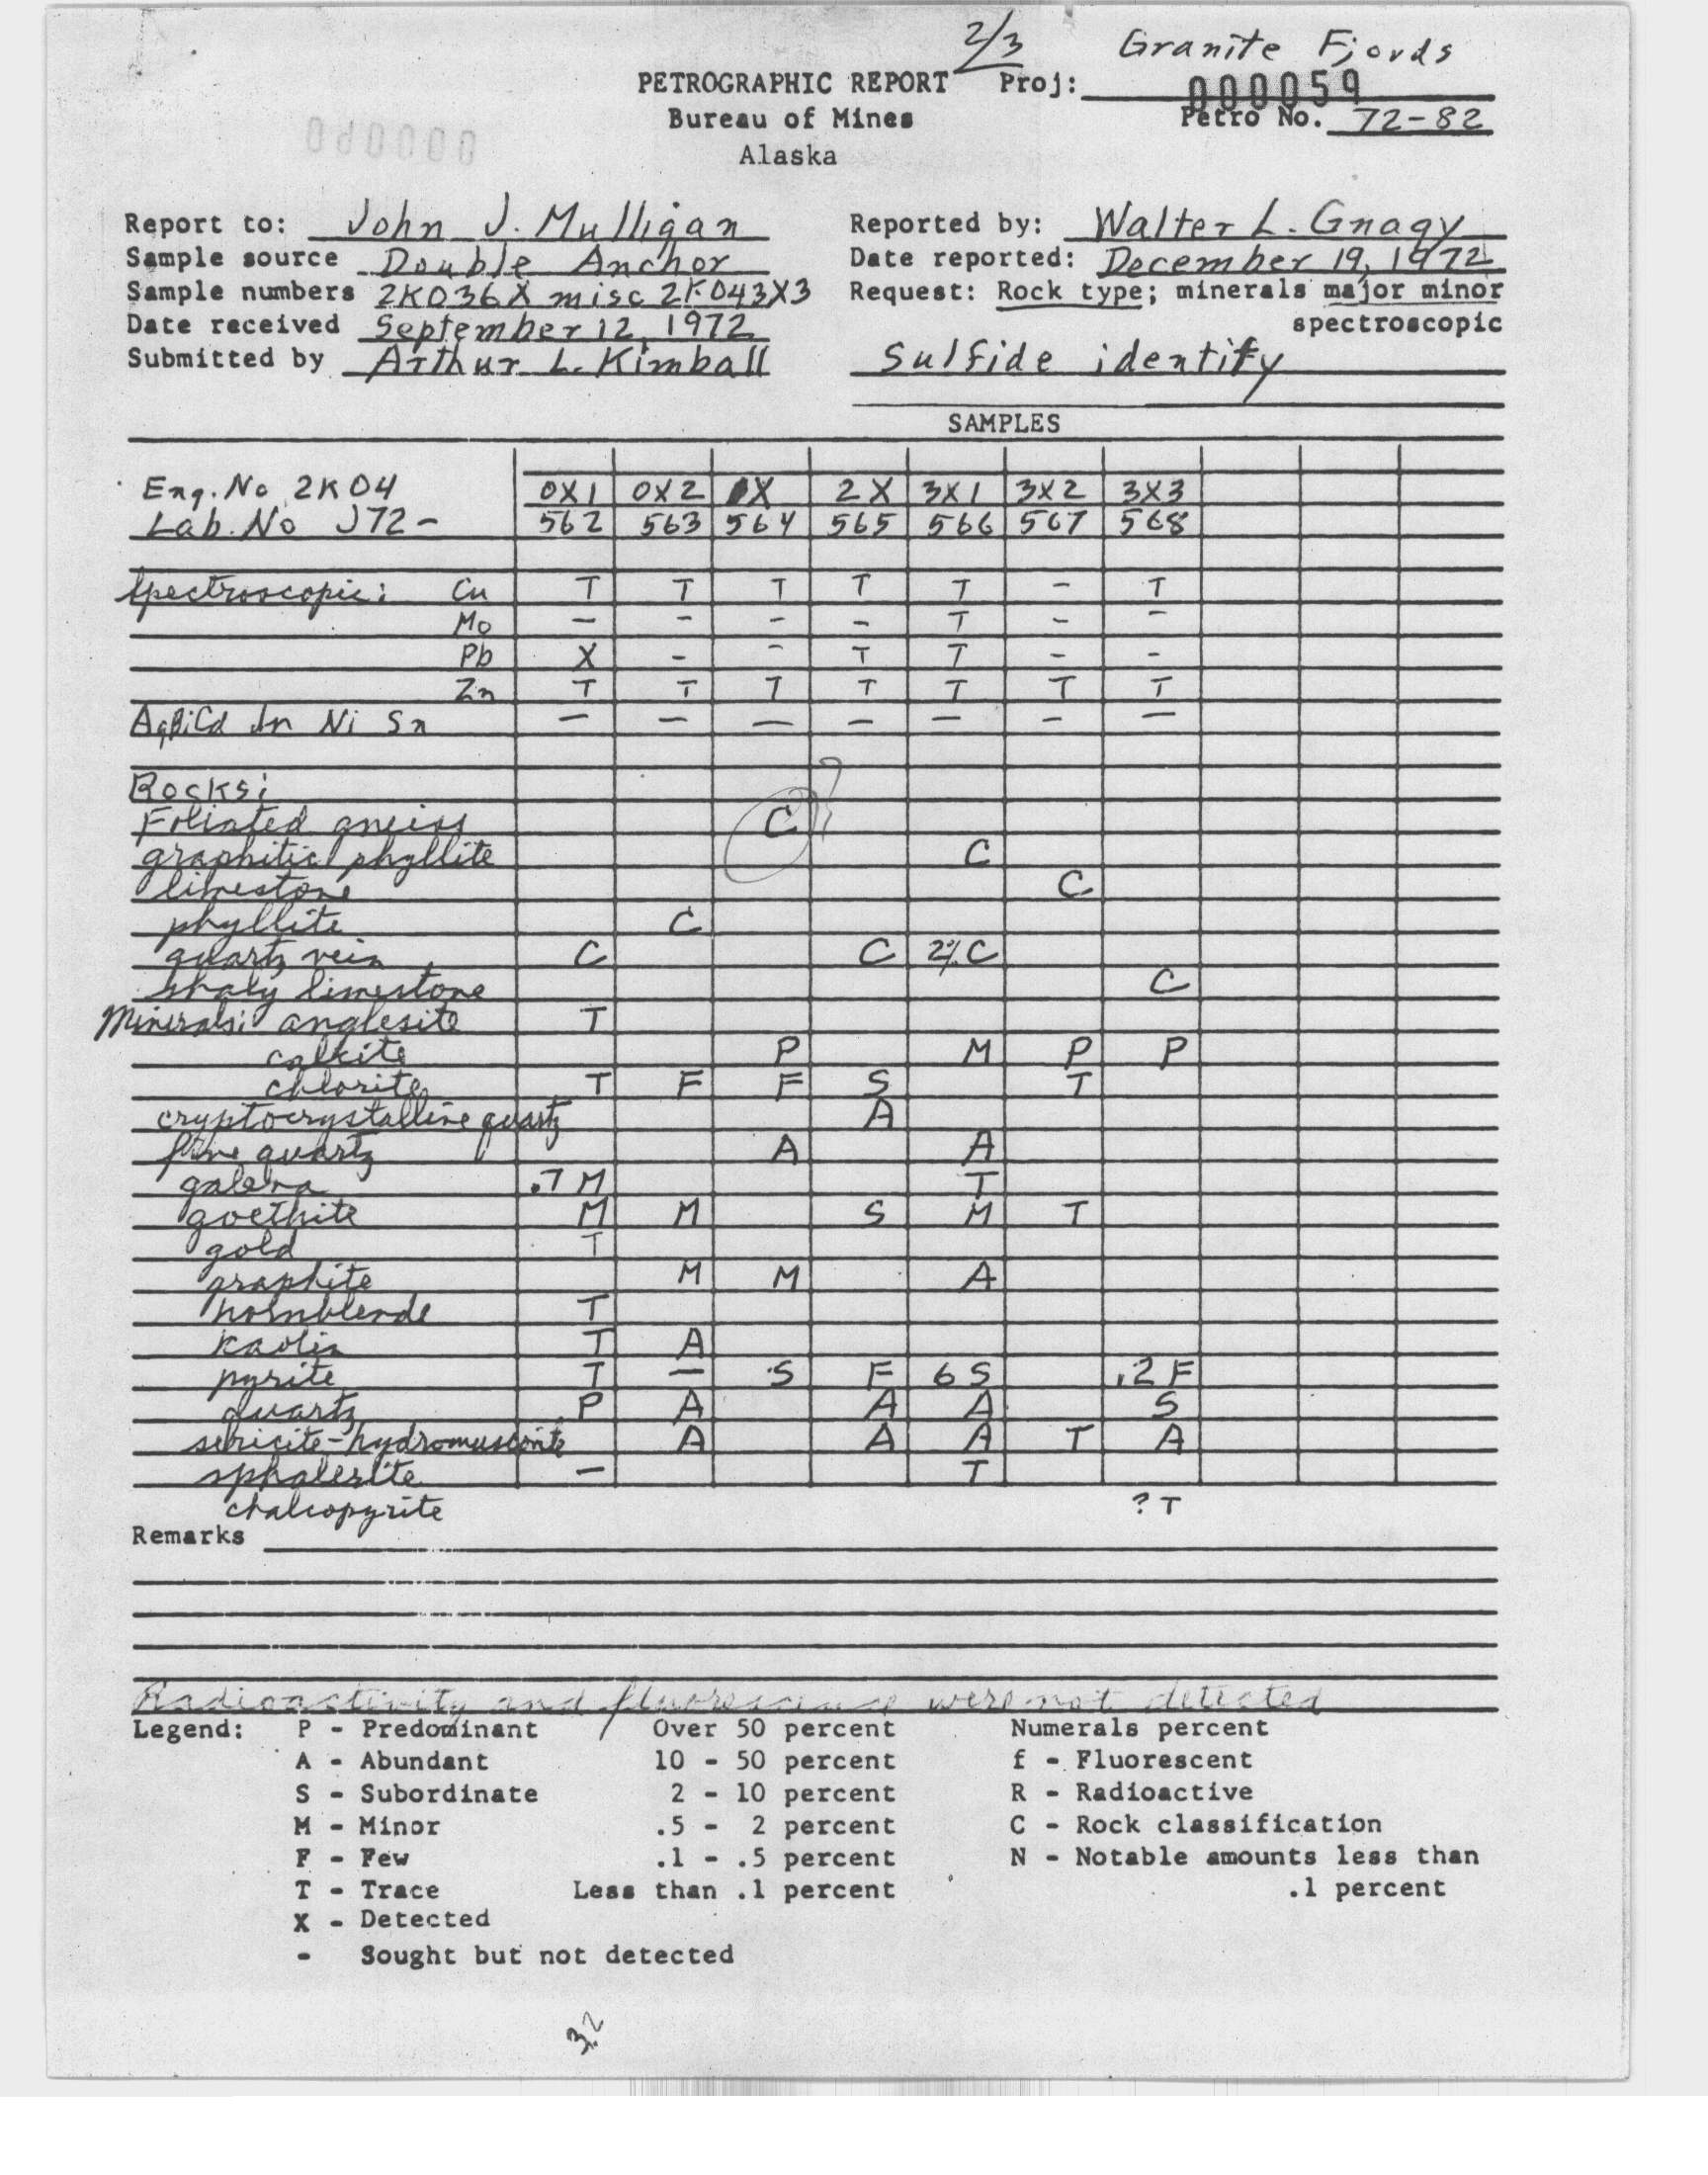 2/3 Granite Fjords
PETROGRAPHIC REPORT Proj: 000059
Bureau of Mines Petro No. 72-82
Alaska
Report to: John J. Mulligan Reported by: Walter L. Gnagy
Sample source Double Anchor Date reported: December 19, 1972
Sample numbers 2K036X misc 2K043X3 Request: Rock type; minerals major minor
Date received September 12, 1972 spectroscopic
Submitted by Arthur L. Kimball Sulfide identify
SAMPLES
Eng. No 2K04 0X1 0X2 1X 2X 3X1 3X2 3X3
Lab. No J72- 562 563 564 565 566 567 568
Spectroscopic: Cu T T T T T - T
Mo - - - - T - -
Pb X - - T T - -
Zn T T T T T T T
Ag Bi Cd In Ni Sn - - - - - - -
Rocks:
Foliated gneiss C ?
graphitic phyllite C
limestone C
phyllite C
quartz vein C C 2% C
shaly limestone C
Minerals: anglesite T
calcite P M P P
chlorite T F F S T
cryptocrystalline quartz A
fine quartz A A
galena .7 M T
goethite M M S M T
gold T
graphite M M A
hornblende T
kaolin T A
pyrite T - S F 6 S .2 F
quartz P A A A S
sericite-hydromuscovite A A A T A
sphalerite - T
chalcopyrite ? T
Remarks
Radioactivity and fluorescence were not detected
Legend: P - Predominant Over 50 percent Numerals percent
A - Abundant 10 - 50 percent f - Fluorescent
S - Subordinate 2 - 10 percent R - Radioactive
M - Minor .5 - 2 percent C - Rock classification
F - Few .1 - .5 percent N - Notable amounts less than
T - Trace Less than .1 percent .1 percent
X - Detected
- Sought but not detected
32